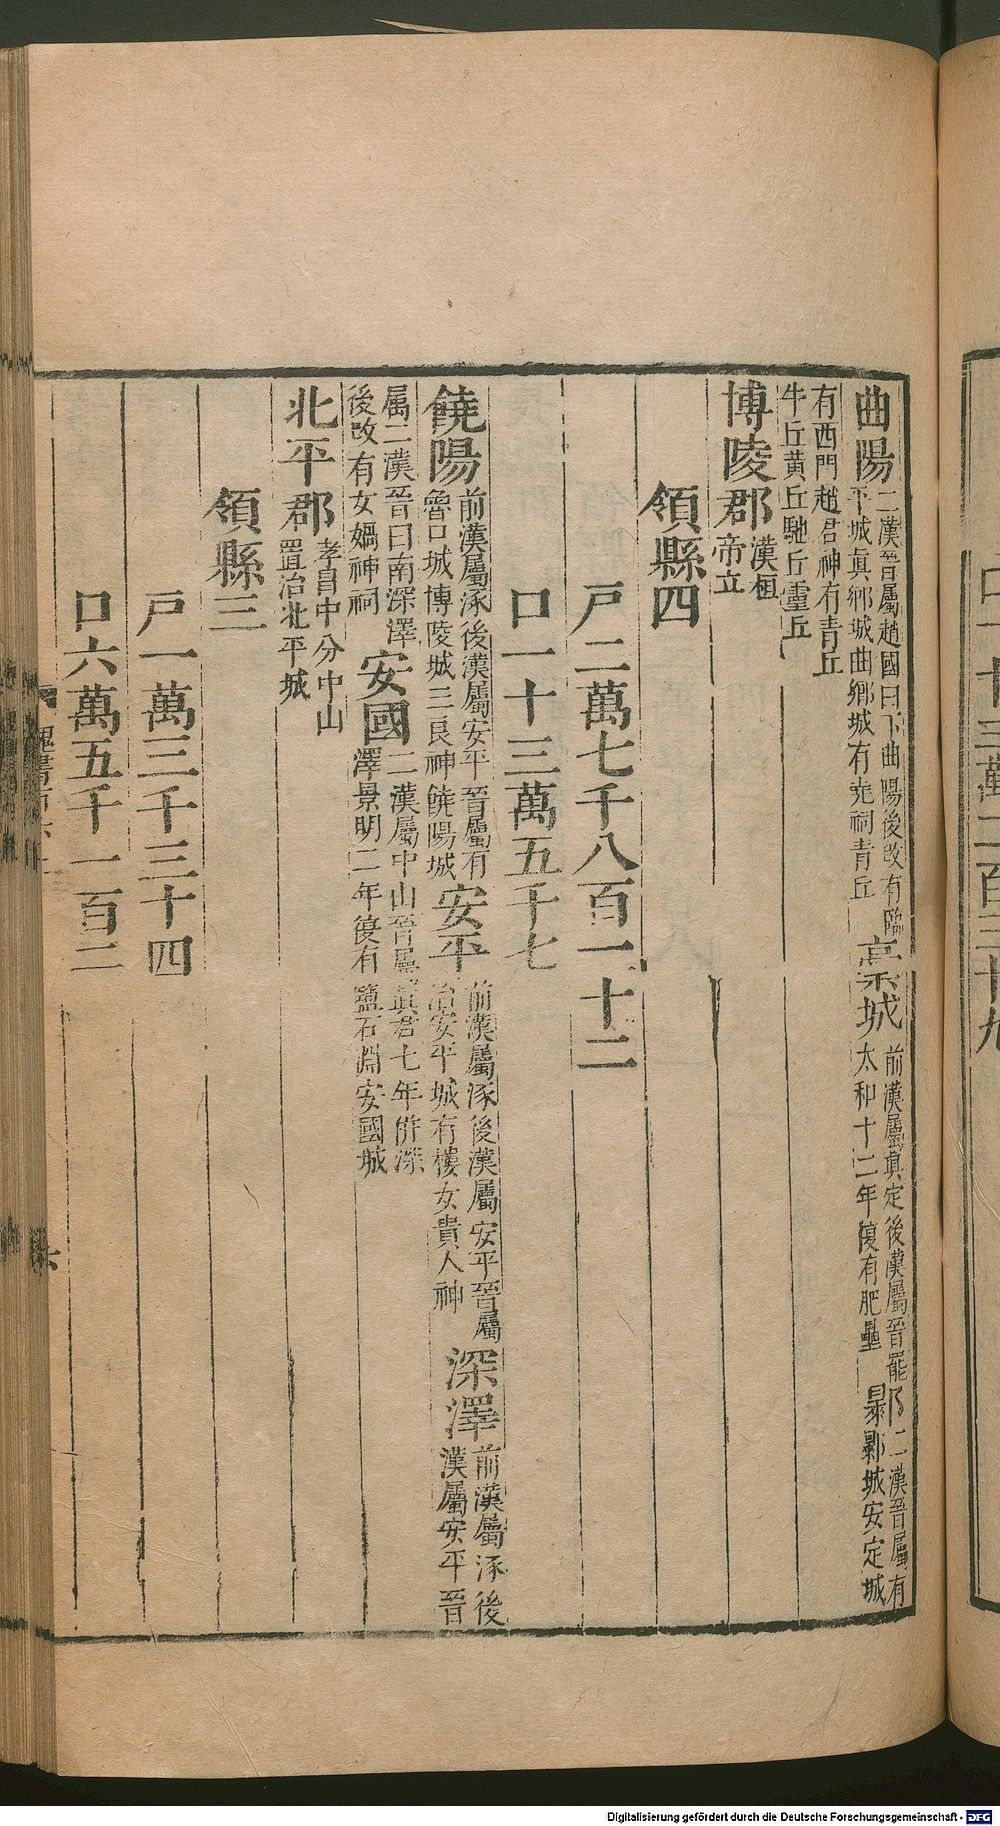 曲陽二漢晉屬趙國曰下曲陽後改有臨平城眞鄉城曲鄉城有堯祠青丘
稾城前漢屬眞定後漢屬晉罷太和十二年復有肥壘
二漢晉屬有㬥鄡城安定城
有西門趙君神有青丘牛丘黄丘馳丘靈丘
博陵郡漢桓帝立
領縣四
戸二萬七千八百一十二
口一十三萬五千七
饒陽前漢屬涿後漢屬安平晉屬有魯口城博陵城三良神饒陽城安平前漢屬涿後漢屬安平晉屬治安平城有樓女貴人神深澤前漢屬涿後漢屬安平晉
屬二漢晉曰南深澤後改有女媧神祠安國二漢屬中山晉屬眞君七年併深澤景明二年復有鹽石淵安國城
北平郡孝昌中分中山置治北平城
領縣三
戸一萬三千三十四
口六萬五千一百二
魏書
六
Digitalisierung gefördert durch die Deutsche Forschungsgemeinschaft - DFG